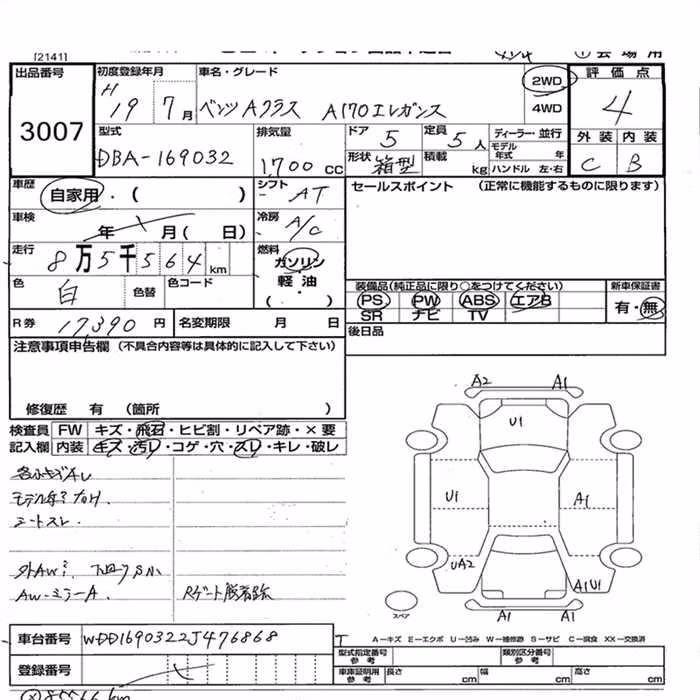 [2141]
出品番号 初度登録年月 車名・グレード 2WD 評価点
3007 H 19 7月 ベンツAクラス A170エレガンス 4WD 4
型式 排気量 ドア 5 定員 5人 ディーラー・並行 外装 内装
DBA-169032 1,700 cc 形状 箱型 積載 kg モデル年式 年 ハンドル 左・右 C B
車歴 自家用・( ) シフト AT セールスポイント (正常に機能するものに限ります)
車検 年 月( 日) 冷房 A/C
走行 8万5千564km 燃料 ガソリン 軽油 ( )
色 白 色替 色コード 装備品(純正品に限り○をつけてください) 新車保証書
PS PW ABS エアB 有・無
R券 17390円 名変期限 月 日 SR ナビ TV
注意事項申告欄 (不具合内容等は具体的に記入して下さい) 後日品
修復歴 有 (箇所 )
A2 A1
検査員 FW キズ・飛石・ヒビ割・リペア跡・×要 U1
記入欄 内装 キズ・汚レ・コゲ・穴・スレ・キレ・破レ
U1 A1
シートスレ
UA2 A1U1
AW・ミラーA Rゲート脱着跡 スペア
A1 A1
車台番号 WDD1690322J476868 A-キズ E-エクボ U-凹み W-補修跡 S-サビ C-腐食 XX-交換済
登録番号 型式指定番号 参考 類別区分番号 参考
車庫証明用 参考 長さ cm 幅 cm 高さ cm